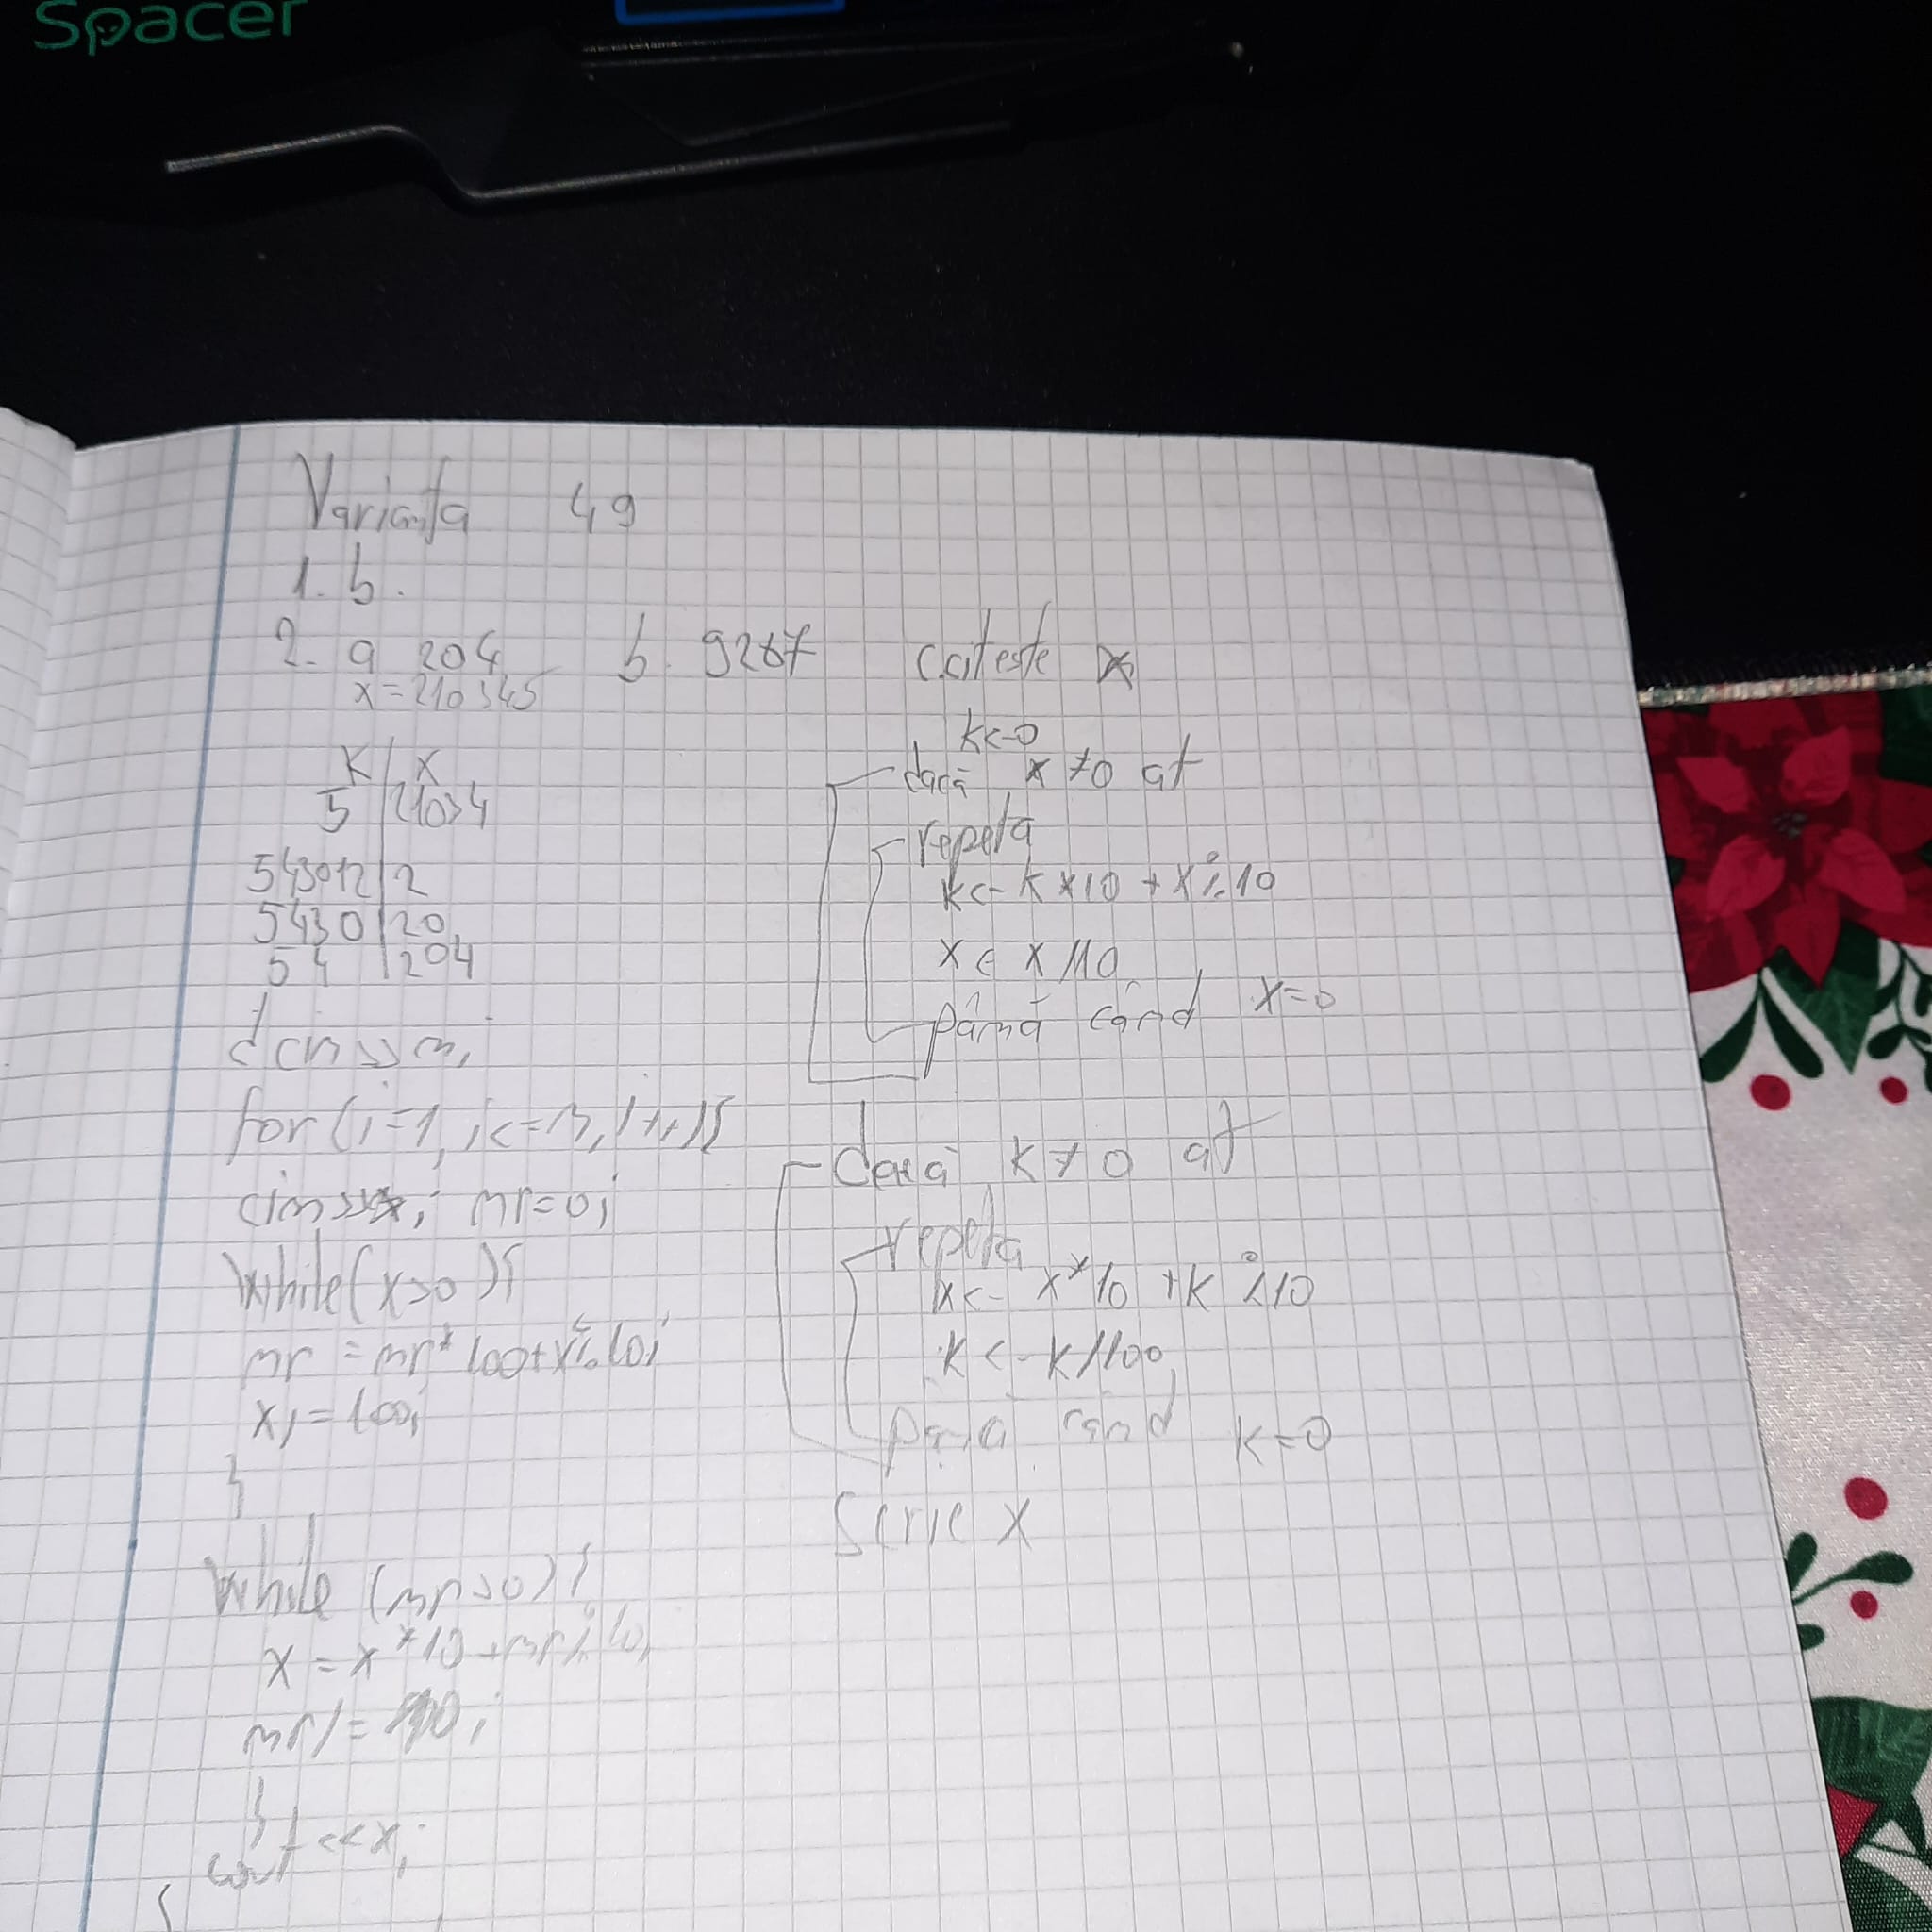 Spacer
Varianta 49
1. b.
2. a 204 b. 9287
x=210345
K | X
5 | 21034
543012 | 2
5430 | 20
54 | 204
d cin>>n;
for(i=1; i<=n; i++){
cin>>x; nr=0;
while(x>0){
nr=nr*100+x%10;
x/=100;
}
while (nr>0){
x=x*10+nr%10;
nr/=10;
}
cout<<x;
citeste x
k<-0
dacă x≠0 at
repetă
k<-k*10+x%10
x<-x/10
până când x=0
dacă k≠0 at
repetă
x<-x*10+k%10
k<-k/100
până când k=0
Scrie x